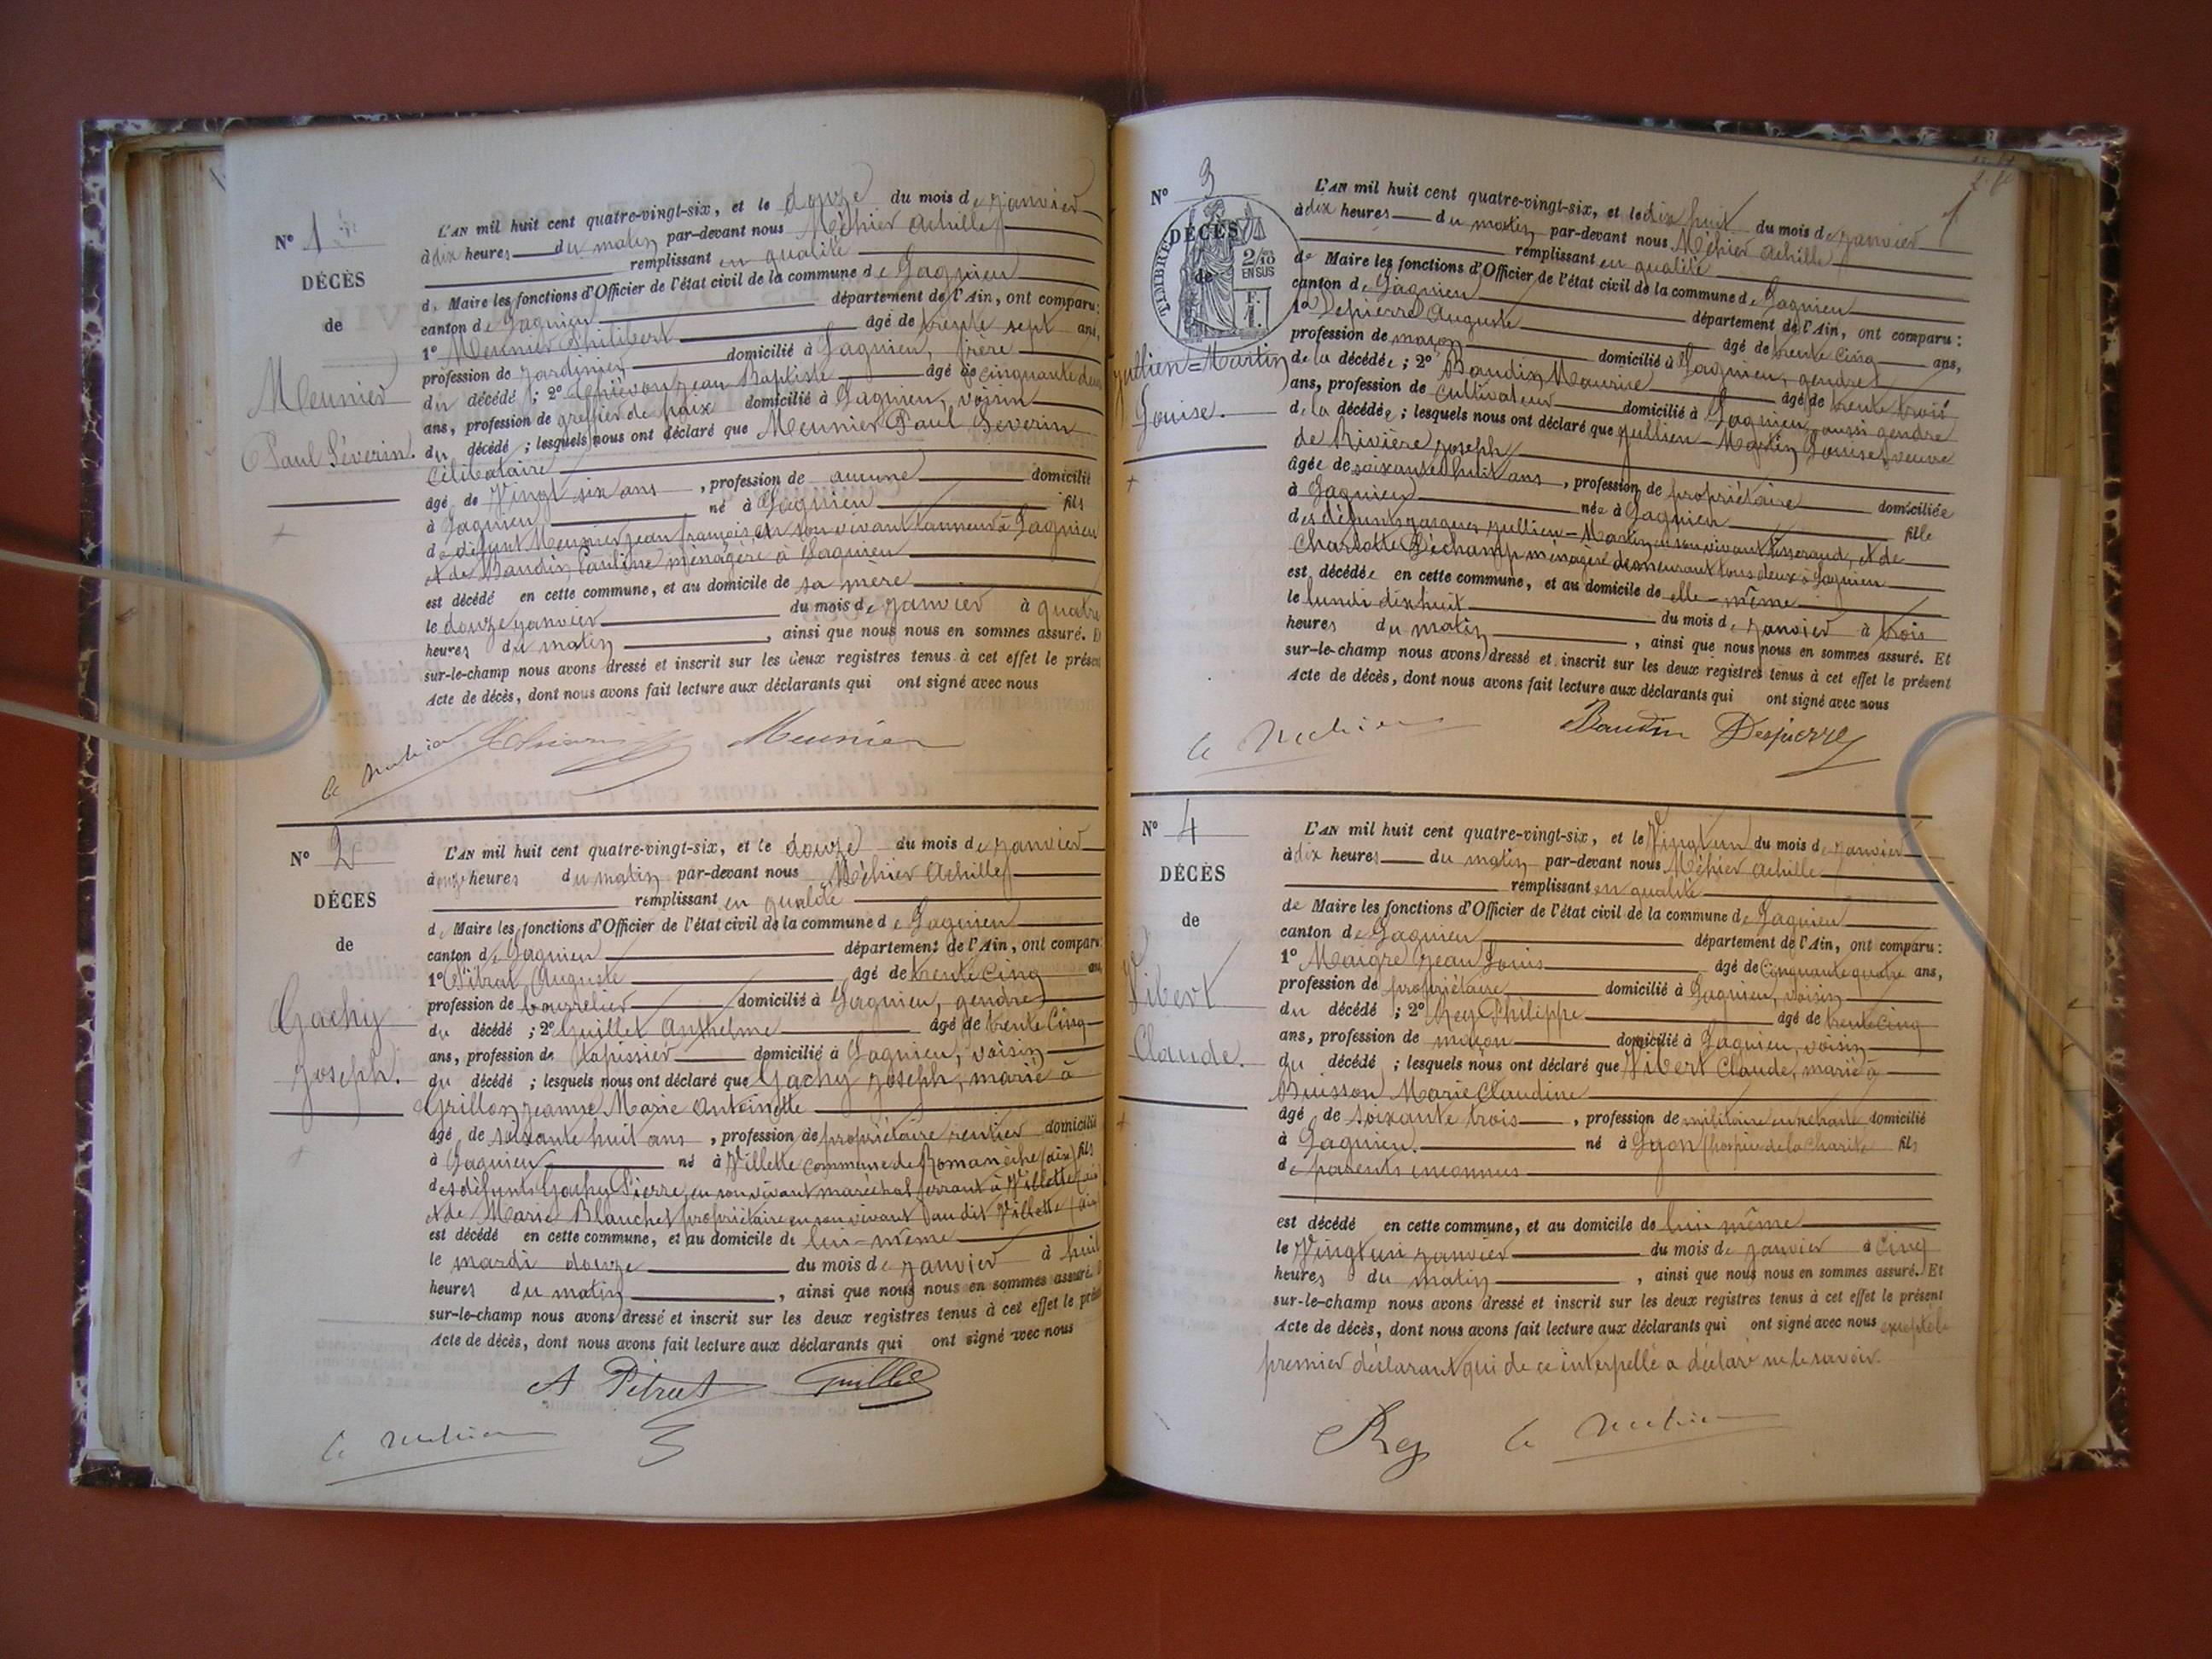 N° 1
DÉCÈS
de
Meunier
Paul Séverin.
L'AN mil huit cent quatre-vingt-six, et le douze du mois de janvier
à dix heures du matin par-devant nous Méhier Achille
remplissant en qualité
de Maire les fonctions d'Officier de l'état civil de la commune de Lagnieu
canton de Lagnieu département de l'Ain, ont comparu:
1° Meunier Philibert âgé de trente sept ans,
profession de jardinier domicilié à Lagnieu, frère
du décédé ; 2° Jean Baptiste âgé de cinquante deux
ans, profession de greffier de paix domicilié à Lagnieu, voisin
du décédé ; lesquels nous ont déclaré que Meunier Paul Severin
Célibataire
âgé de Vingt six ans , profession de aucune domicilié
à Lagnieu né à Lagnieu fils
de défunt Meunier jean françois en son vivant tanneur à Lagnieu
et de Baudin, Pauline ménagère à Lagnieu
est décédé en cette commune, et au domicile de sa mère
le douze janvier du mois de janvier à quatre
heures du matin , ainsi que nous nous en sommes assuré. Et
sur-le-champ nous avons dressé et inscrit sur les deux registres tenus à cet effet le présent
Acte de décès, dont nous avons fait lecture aux déclarants qui ont signé avec nous
Meunier
N° 2
DÉCES
de
Gachy
joseph.
L'AN mil huit cent quatre-vingt-six, et le douze du mois de janvier
à onze heures du matin par-devant nous Méhier Achille
remplissant en qualité
de Maire les fonctions d'Officier de l'état civil de la commune de Lagnieu
canton de Lagnieu département de l'Ain, ont comparu
1° Pitrat Auguste âgé de trente cinq ans
profession de bourrelier domicilié à Lagnieu, gendre
du décédé ; 2° Guillet Anthelme âgé de trente cinq
ans, profession de tapissier domicilié à Lagnieu, voisin
du décédé ; lesquels nous ont déclaré que Gachy joseph, marié à
Grillon jeanne Marie Antoinette
âgé de soixante huit ans , profession de propriétaire rentier domicilié
à Lagnieu né à Villette commune de Romanèche (ain) fils
des défunts Gachy Pierre, en son vivant maréchal ferrant à Villette (ain)
et de Marie Blanchet propriétaire en son vivant au dit Villette (ain)
est décédé en cette commune, et au domicile de lui-même
le mardi douze du mois de janvier à huit
heures du matin , ainsi que nous nous en sommes assuré. E
sur-le-champ nous avons dressé et inscrit sur les deux registres tenus à cet effet le prése
Acte de décès, dont nous avons fait lecture aux déclarants qui ont signé avec nous
A Pitrat Guillet
N° 3
DÉCÈS
de
TIMBRE
2/10
EN SUS
F.
1.
Jullien=Martin
Louise.
1
L'AN mil huit cent quatre-vingt-six, et le dix huit du mois de janvier
à dix heures du matin par-devant nous Méhier Achille
remplissant en qualité
de Maire les fonctions d'Officier de l'état civil de la commune de Lagnieu
canton de Lagnieu département de l'Ain, ont comparu :
1° Depierre Auguste âgé de trente cinq ans,
profession de maçon domicilié à Lagnieu, gendre
de la décédée ; 2° Baudin Maurice âgé de trente trois
ans, profession de cultivateur domicilié à Lagnieu, aussi gendre
de la décédée ; lesquels nous ont déclaré que jullien-Martin Louise, veuve
de Rivière joseph
âgée de soixante huit ans , profession de propriétaire domiciliée
à Lagnieu née à Lagnieu fille
des défunts jacques jullien-Martin en son vivant tisserand, et de
Charlotte Déchamp ménagère demeurant tous deux à Lagnieu
est décédée en cette commune, et au domicile de elle-même
le lundi dix huit du mois de janvier à trois
heures du matin , ainsi que nous nous en sommes assuré. Et
sur-le-champ nous avons dressé et inscrit sur les deux registres tenus à cet effet le présent
Acte de décès, dont nous avons fait lecture aux déclarants qui ont signé avec nous
Baudin Despierre
N° 4
DÉCÈS
de
Vibert
Claude.
L'AN mil huit cent quatre-vingt-six, et le Vingt un du mois de janvier
à dix heures du matin par-devant nous Méhier Achille
remplissant en qualité
de Maire les fonctions d'Officier de l'état civil de la commune de Lagnieu
canton de Lagnieu département de l'Ain, ont comparu :
1° Maigre jean Louis âgé de cinquante quatre ans,
profession de propriétaire domicilié à Lagnieu, voisin
du décédé ; 2° Rey Philippe âgé de trente cinq
ans, profession de maçon domicilié à Lagnieu, voisin
du décédé ; lesquels nous ont déclaré que Vibert Claude, marié à
Buisson Marie Claudine
âgé de soixante trois , profession de militaire en retraite domicilié
à Lagnieu. né à Lyon (hospice de la Charité fils
de parents inconnus
est décédé en cette commune, et au domicile de lui même
le Vingt un janvier du mois de janvier à cinq
heures du matin , ainsi que nous nous en sommes assuré. Et
sur-le-champ nous avons dressé et inscrit sur les deux registres tenus à cet effet le présent
Acte de décès, dont nous avons fait lecture aux déclarants qui ont signé avec nous excepté le
premier déclarant qui de ce interpellé a déclaré ne le savoir.
Rey